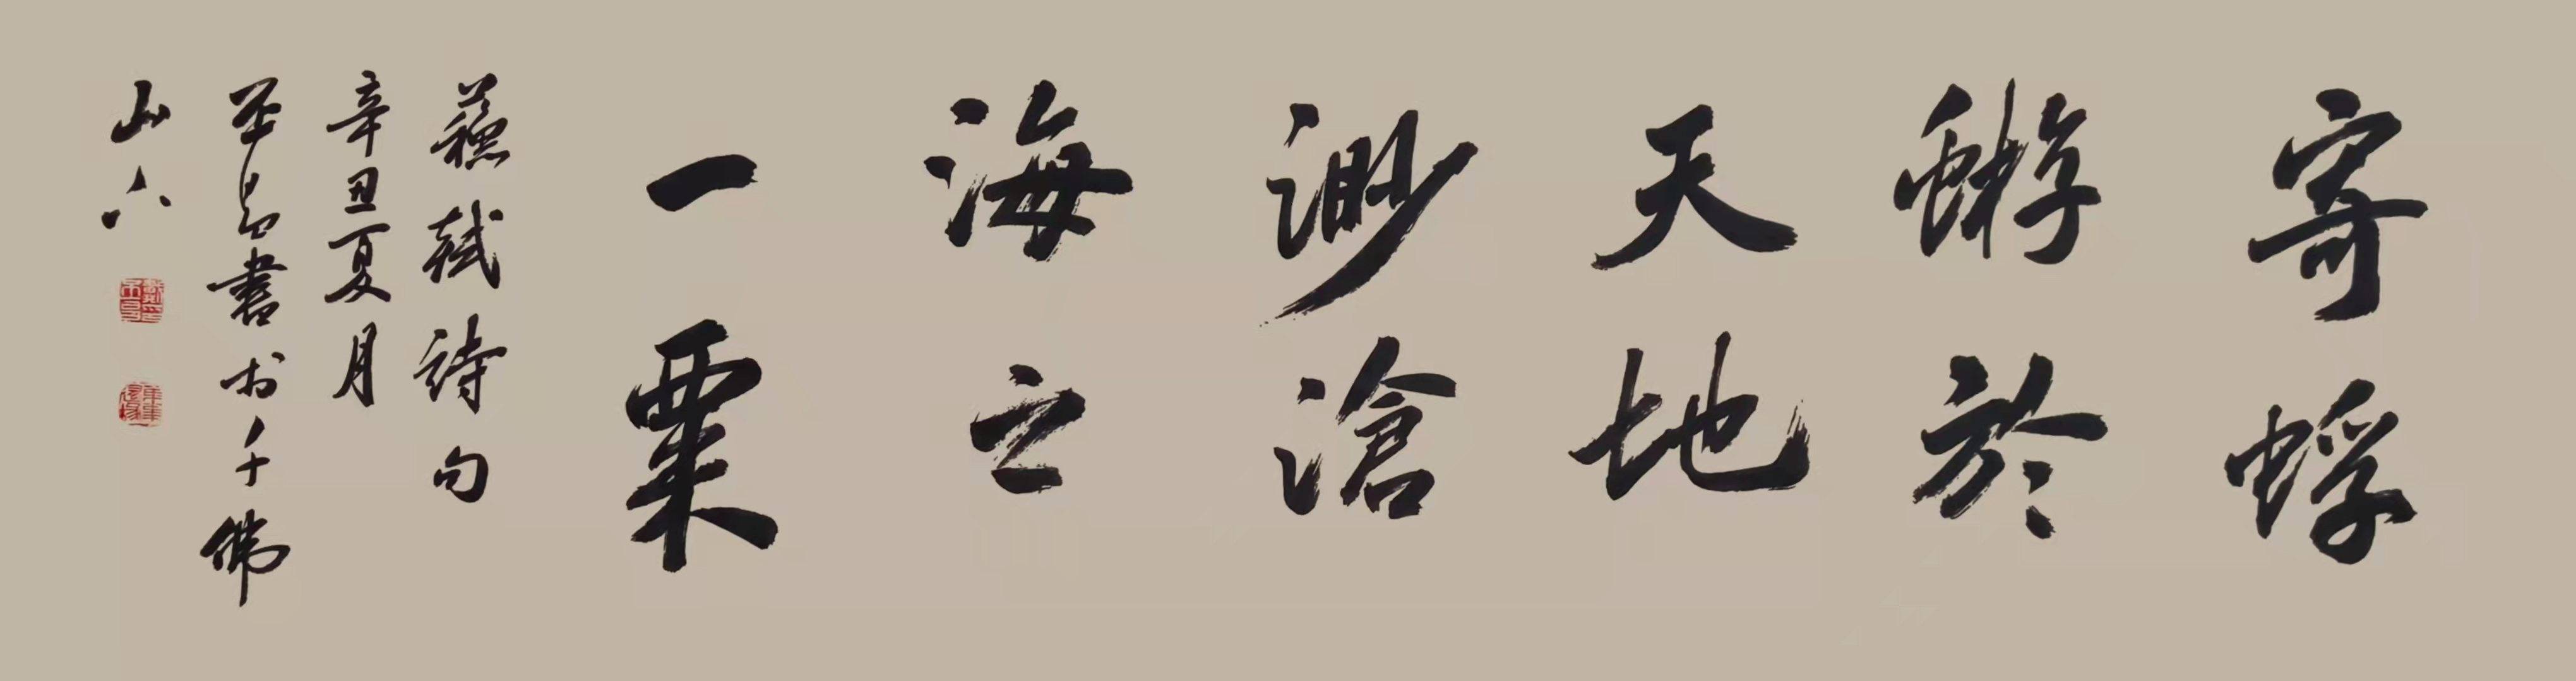 寄蜉
蝣於
天地
渺滄
海之
一粟
蘇軾詩句
辛丑夏月
平書於千佛
山下